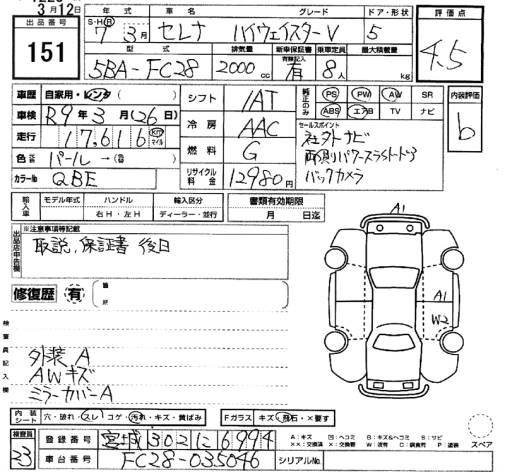 3月12日
出品番号
151
年式 車名 グレード ドア・形状
S・H・R 7年 3月 セレナ ハイウェイスターV 5
評価点
4.5
型式 排気量 新車保証書 乗車定員 最大積載量
有無記入
5BA-FC28 2000cc 有 8人 kg
車歴 自家用・レンタ( )
車検 R9年3月(26日)
走行 17,616 Km マイル
色 パール→(色替)
カラーNo QBE
シフト IAT
冷房 AAC
燃料 G
リサイクル料金 12980円
純正のみ PS PW AW SR
ABS エアB TV ナビ
セールスポイント
社外ナビ
両側パワースライドドア
バックカメラ
内装評価
b
輸入車 モデル年式 ハンドル 輸入区分
年 右H・左H ディーラー・並行
書類有効期限
月 日迄
出品店申告欄
※注意事項等記載
取説、保証書 後日
修復歴 有 箇所
検査員記入欄
外装A
AWキズ
ミラーカバーA
A1
A1
W2
内装シート 穴・破れ・スレ・コゲ・汚れ・キズ・黄ばみ
Fガラス キズ・飛石・×要す
検査員
23
登録番号 宮城302に6994
車台番号 FC28-035046 シリアルNo.
A:キズ 凹:ヘコミ B:キズ&ヘコミ S:サビ
××:交換済 ×:交換要 W:波有 C:腐食有 P:塗装
スペア